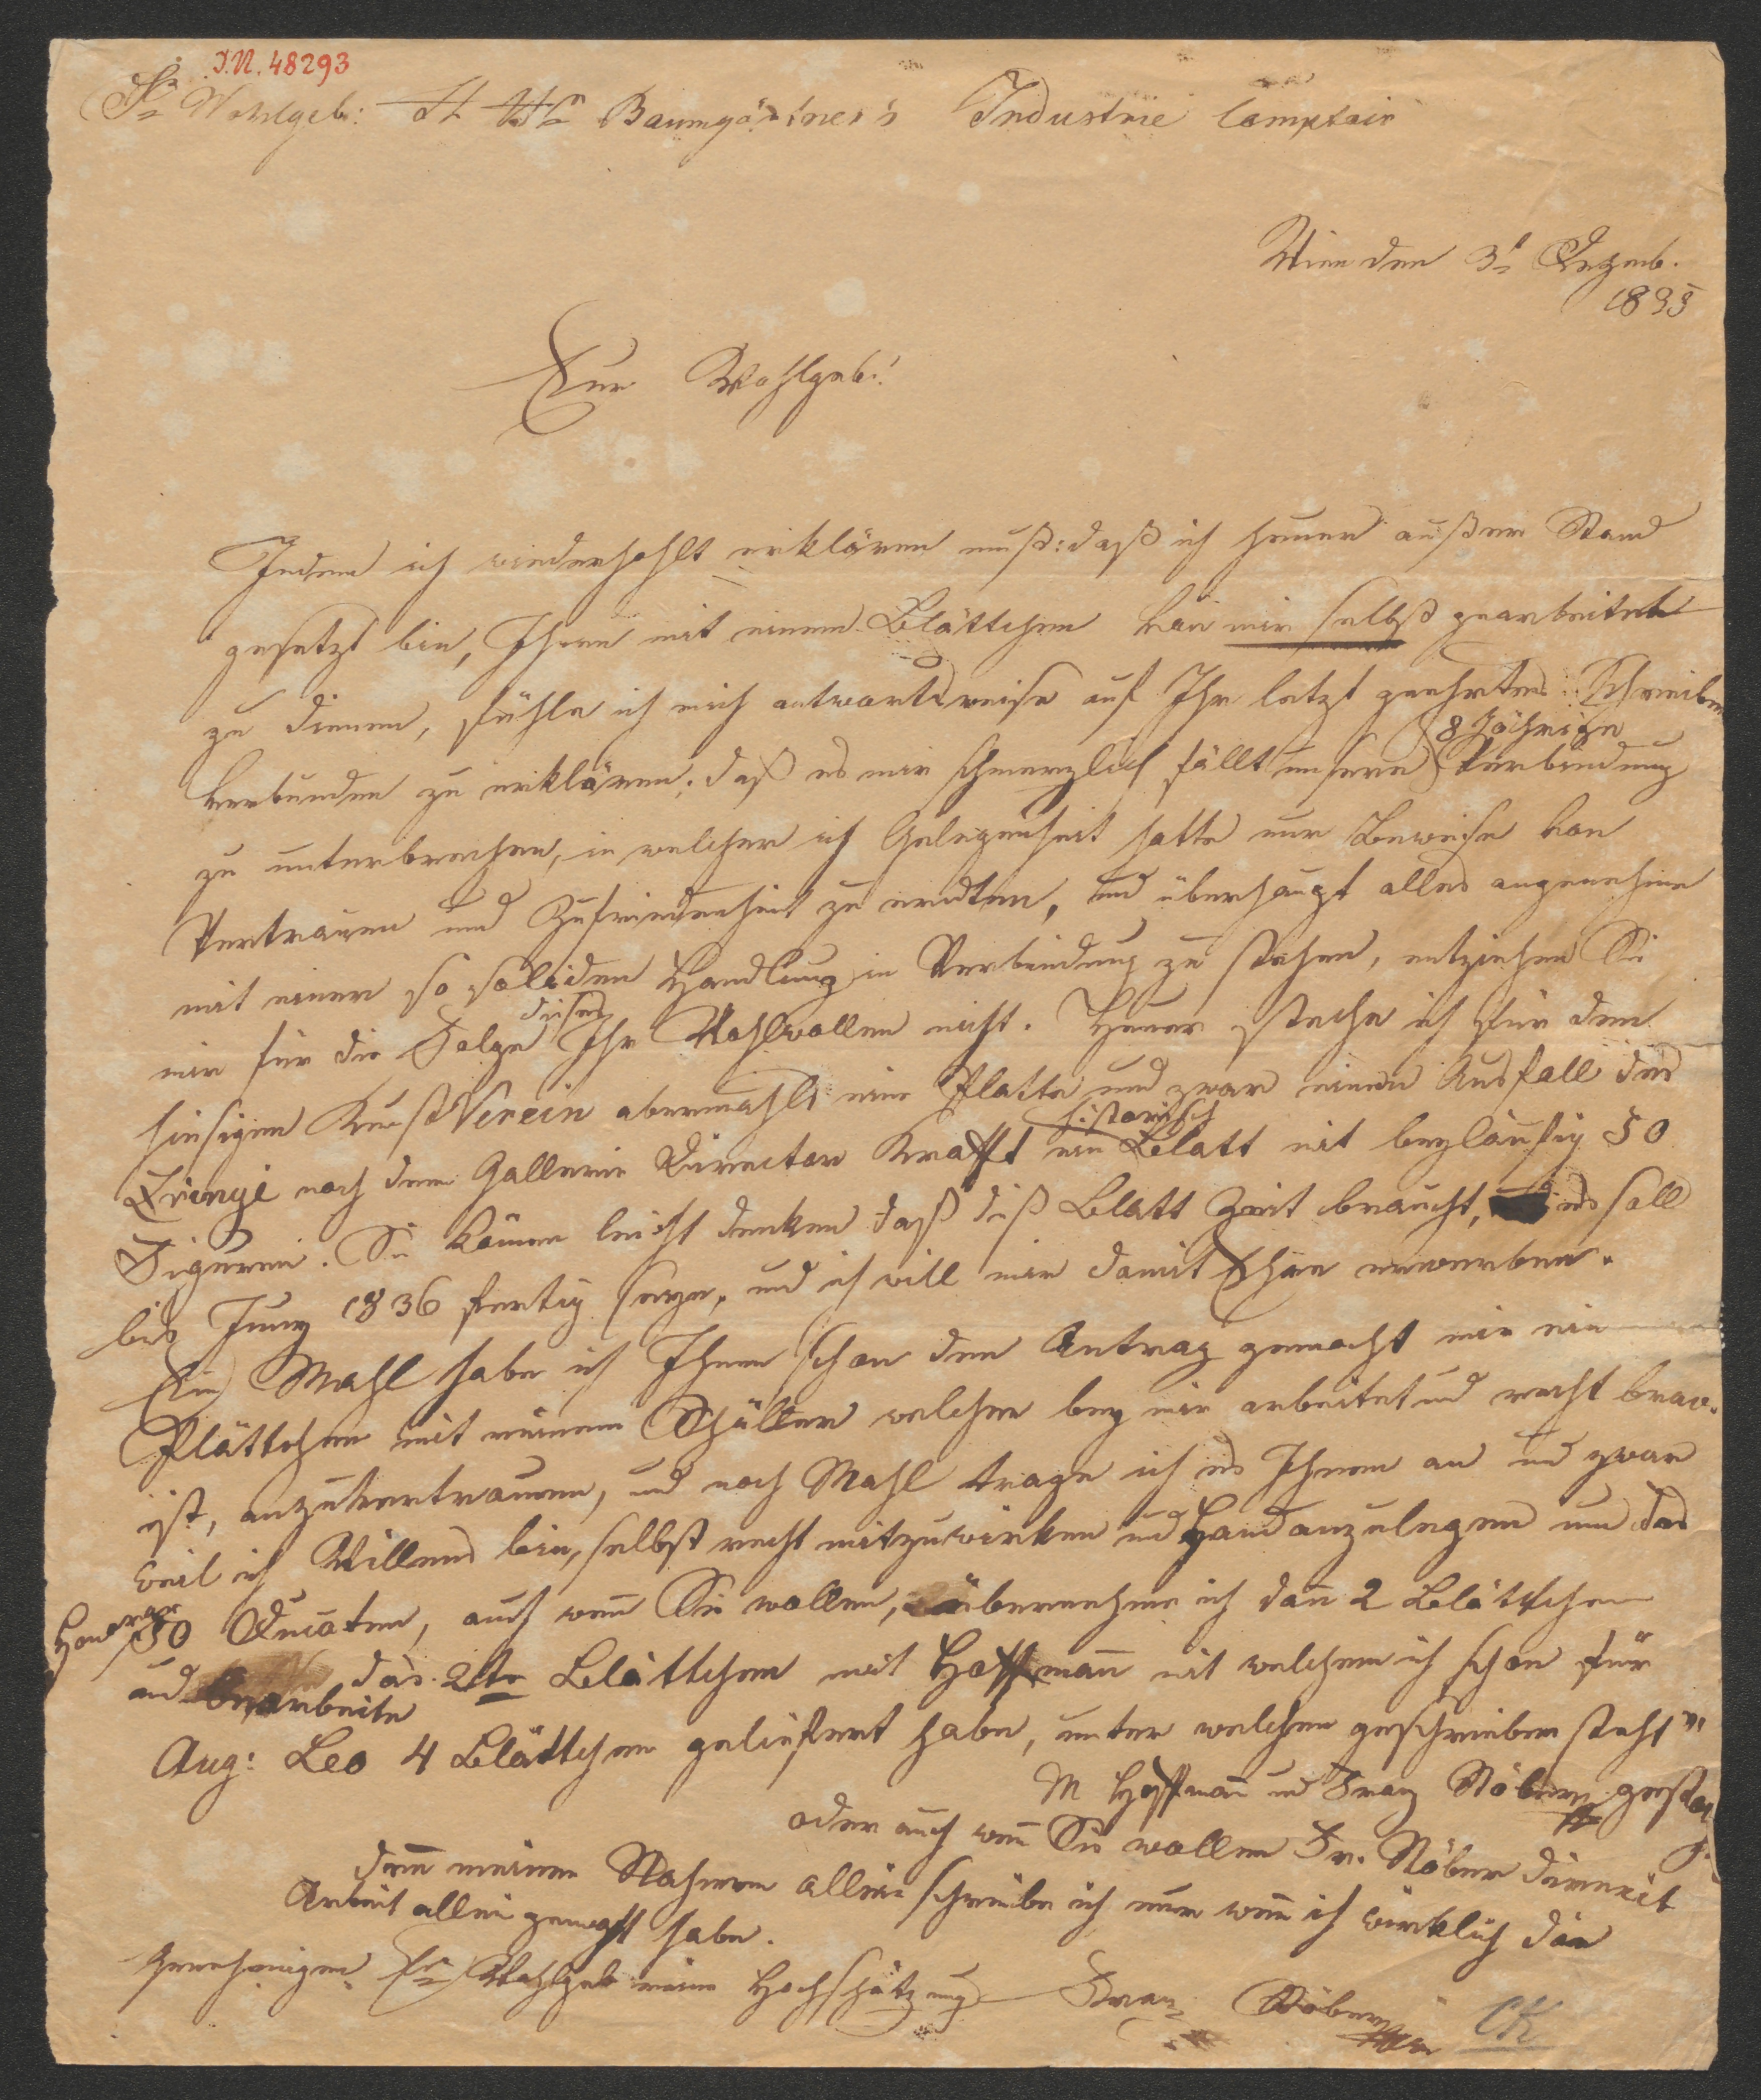 I.N. 48293
Sr Wohlgeb: H Hrn Baumgärtner's Industrie Comptoir
Wien den 3t Dezemb.
1835
Euer Wohlgeb.!
Indem ich wiederhohlt erklären muß: daß ich heuer außer Stand
gesetzt bin, Ihnen mit einem Blättchen von mir selbst gearbeitet
zu dienen, fühle ich mich antwortsweise auf Ihr letzt geehrtes Schreiben
verbunden zu erklären: daß es mir schmerzlich fällt unsere 8 jährige Verbindung
zu unterbrechen, in welcher ich Gelegenheit hatte nur Beweise von
Vertrauen und Zufriedenheit zu erndten, und überhaupt alles angenehme
mit einer so soliden Handlung in Verbindung zu stehen, entziehen Sie
mir für die Folge dieses Ihr Wohlwollen nicht. Heuer steche ich für den
hiesigen KunstVerein abermahls eine Platte und zwar einen Ausfall des
Zrinyi nach dem Gallerie Director Krafft ein historisch Blatt mit beyläufig 50
Figuren. Sie können leicht denken daß diß Blatt Zeit braucht, es soll
bis Juny 1836 fertig seyn, und ich will mir damit Ehre erwerben.
Ein Mahl habe ich Ihnen schon den Antrag gemacht mir ein
Plättchen mit meinem Schüller welcher bey mir arbeitet und recht brav
ist, anzuvertrauen, und noch Mahl trage ich es Ihnen an und zwar
weil ich Willens bin, selbst recht mitzuwirken und Hand anzulegen um das
Honorar 50 Ducaten, auch wenn Sie wollen, übernehme ich dan 2 Blättchen
und bearbeite das 2te Blättchen mit Hoffmann mit welchem ich schon für
Aug: Leo 4 Blättchen geliefert habe, unter welchen geschrieben steht "
M Hoffmann und Franz Stöber gestoch
oder auch wenn Sie wollen Fr. Stöber direxit
denn meinen Nahmen allein schreibe ich nur wenn ich wirklich die
Arbeit allein gemacht habe.
Genehmigen Er Wohlgeb meine Hochschätzung Franz Stöber
CK